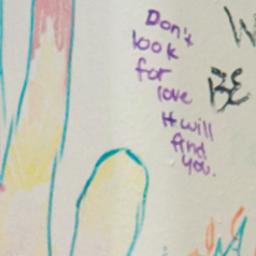 Don't
look
for
love
It will
find
you.
BE